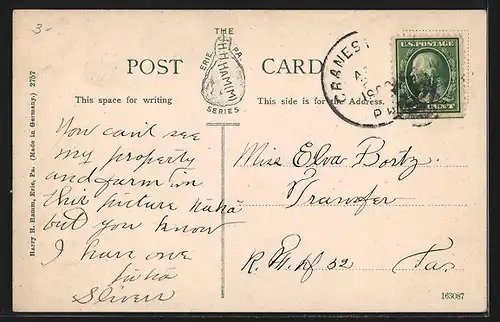 3-
THE
H.H.HAMM
ERIE PA.
SERIES
POST CARD
This space for writing
This side is for the Address.
U.S. POSTAGE
CENT
Harry H. Hamm, Erie, Pa. (Made in Germany.) 2757
You can't see
my property
and farm in
this picture haha
but you know
I have one
haha
Miss Elva Bortz
Transfer
R. F. D 52 Pa.
163087